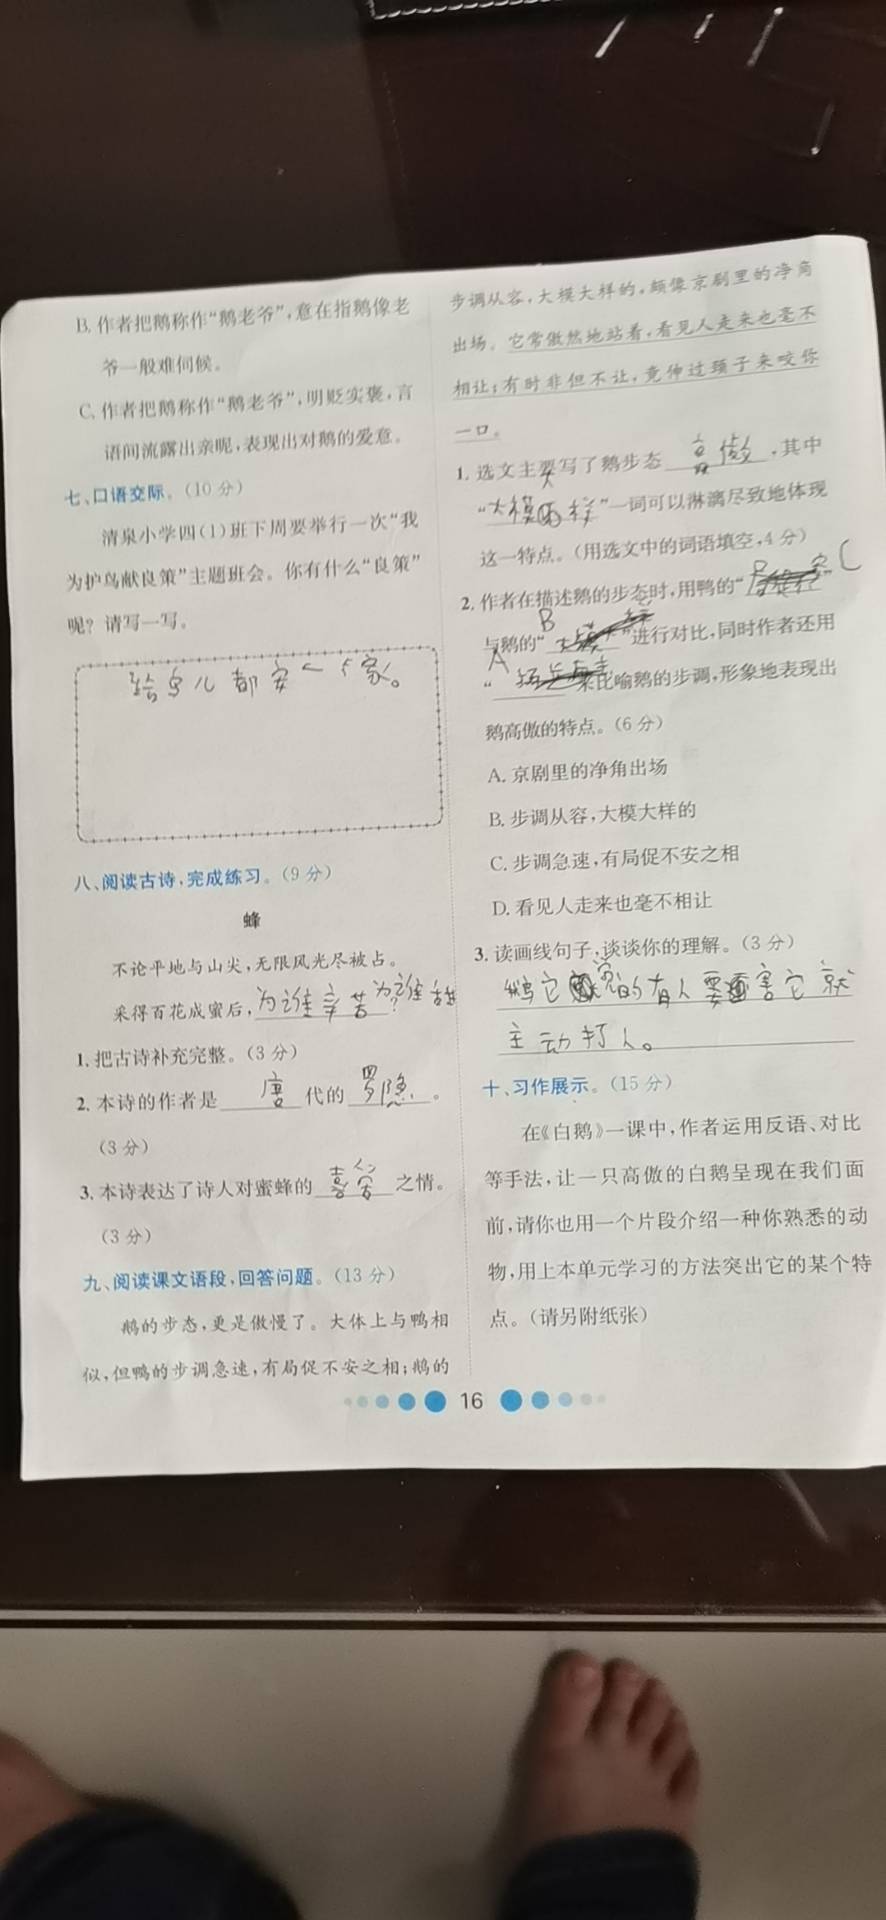 B. 作者把鹅称作“鹅老爷”,意在指鹅像老
爷一般难伺候。
C. 作者把鹅称作“鹅老爷”,明贬实褒,言
语间流露出亲昵,表现出对鹅的爱意。
七、口语交际。(10 分)
清泉小学四(1)班下周要举行一次“我
为护鸟献良策”主题班会。你有什么“良策”
呢?请写一写。
给鸟儿都安一个家。
八、阅读古诗,完成练习。(9 分)
蜂
不论平地与山尖,无限风光尽被占。
采得百花成蜜后,为谁辛苦为谁甜?
1. 把古诗补充完整。(3 分)
2. 本诗的作者是 唐 代的 罗隐 。
(3 分)
3. 本诗表达了诗人对蜜蜂的 喜爱 之情。
(3 分)
九、阅读课文语段,回答问题。(13 分)
鹅的步态,更是傲慢了。大体上与鸭相
似,但鸭的步调急速,有局促不安之相;鹅的
步调从容,大模大样的,颇像京剧里的净角
出场。它常傲然地站着,看见人走来也毫不
相让;有时非但不让,竟伸过颈子来咬你
一口。
1. 选文主要写了鹅步态 高傲 ,其中
“大模大样”一词可以淋漓尽致地体现
这一特点。(用选文中的词语填空,4 分)
2. 作者在描述鹅的步态时,用鸭的“ C ”
与鹅的“ B ”进行对比,同时作者还用
“ A ”来比喻鹅的步调,形象地表现出
鹅高傲的特点。(6 分)
A. 京剧里的净角出场
B. 步调从容,大模大样的
C. 步调急速,有局促不安之相
D. 看见人走来也毫不相让
3. 读画线句子,谈谈你的理解。(3 分)
鹅它 的有人要害它就
主动打人。
十、习作展示。(15 分)
在《白鹅》一课中,作者运用反语、对比
等手法,让一只高傲的白鹅呈现在我们面
前,请你也用一个片段介绍一种你熟悉的动
物,用上本单元学习的方法突出它的某个特
点。(请另附纸张)
16